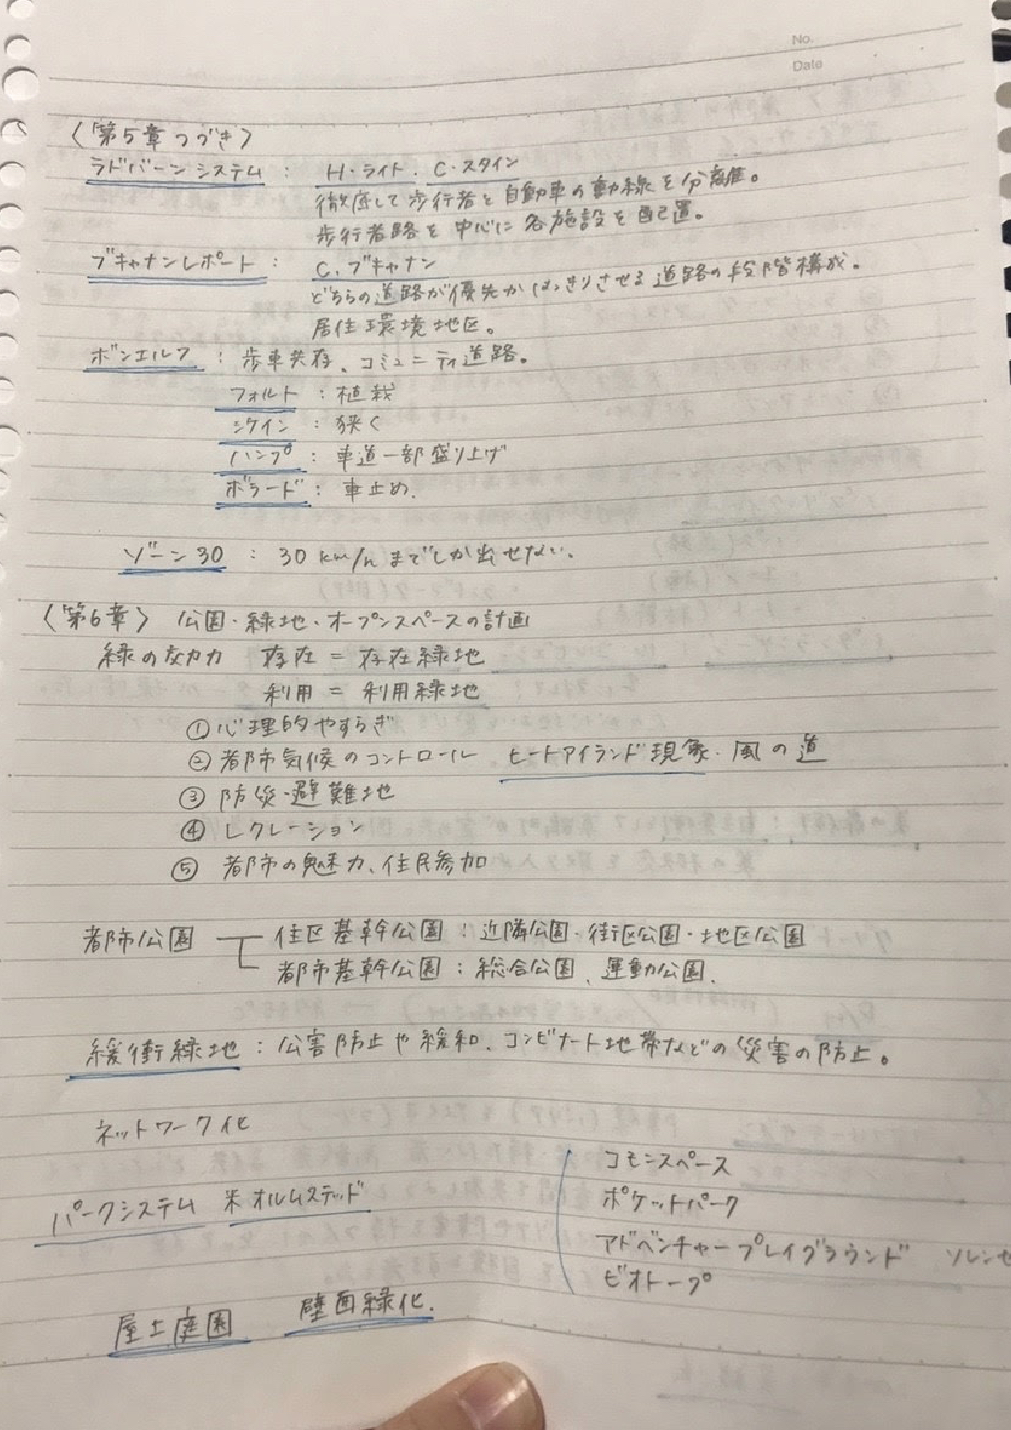 No.
Date
〈第5章つづき〉
ラドバーンシステム : H・ライト. C・スタイン
徹底して歩行者と自動車の動線を分離。
歩行者路を中心に各施設を配置。
ブキャナンレポート : C. ブキャナン
どちらの道路が優先かはっきりさせる道路の段階構成。
居住環境地区。
ボンエルフ : 歩車共存、コミュニティ道路。
フォルト : 植栽
シケイン : 狭く
ハンプ : 車道一部盛り上げ
ボラード : 車止め.
ゾーン30 : 30km/hまでしか出せない.
〈第6章〉 公園・緑地・オープンスペースの計画
緑の効力 存在 = 存在緑地
利用 = 利用緑地
①心理的やすらぎ
②都市気候のコントロール ヒートアイランド現象・風の道
③ 防災・避難地
④ レクレーション
⑤ 都市の魅力、住民参加
都市公園 住区基幹公園 : 近隣公園・街区公園・地区公園
都市基幹公園 : 総合公園、運動公園.
緩衝緑地 : 公害防止や緩和、コンビナート地帯などの災害の防止。
ネットワーク化
パークシステム 米オルムステッド
コモンスペース
ポケットパーク
アドベンチャープレイグラウンド ソレンセ
ビオトープ
屋上庭園 壁面緑化.